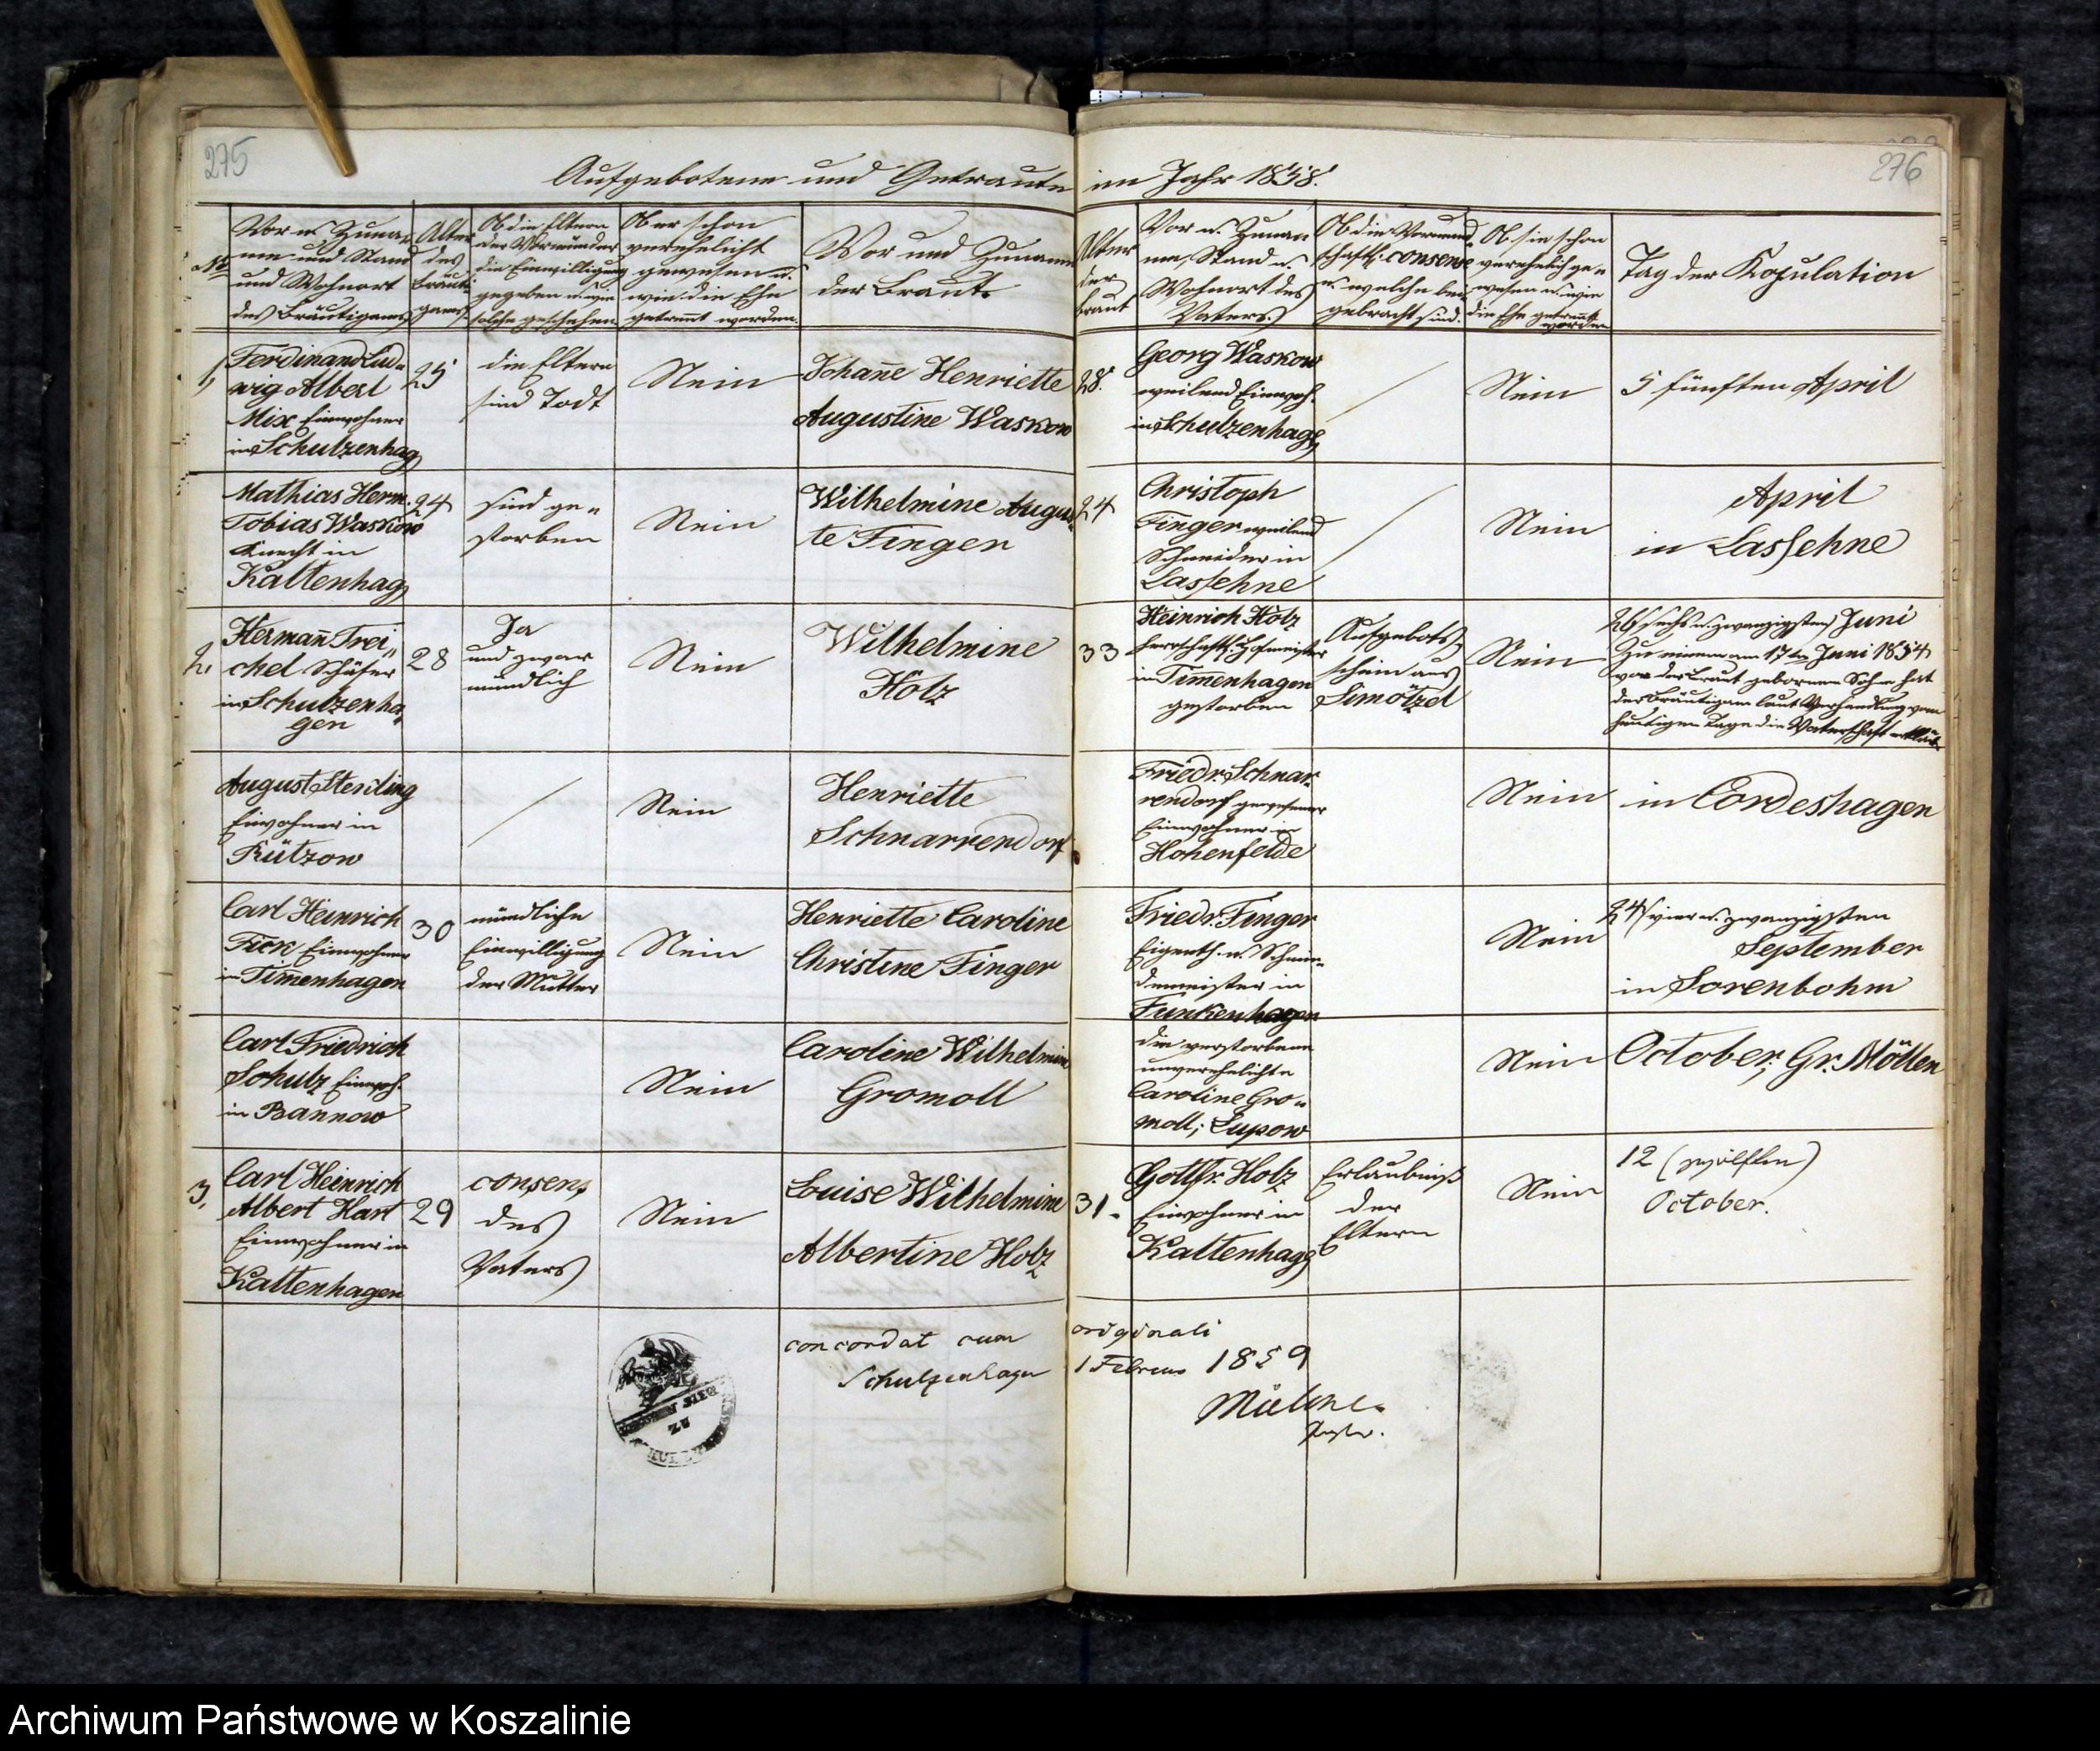 275
276
Aufgebotene und Getraute im Jahr 1858.
No
Vor u. Zuna-
me und Stand
und Wohnort
des Bräutigams
Alter
des
Bräuti-
gams
Ob die Eltern
oder Vormünder
die Einwilligung
gegeben u. wie
solche geschehen
Ob er schon
verehelicht
gewesen u.
wie die Ehe
getrennt worden.
Vor und Zuname
der Braut.
Alter
der
Braut
Vor u. Zunam
me, Stand u.
Wohnort des
Vaters
Ob die Vormund-
schaftl. consense
u. welche bei-
gebracht sind.
Ob sie schon
verehelich ge-
wesen u. wie
die Ehe getrennt
worden
Tag der Kopulation
1,
Ferdinand Lud-
wig Albert
Mix Einwohner
in Schulzenhag
25
die Eltern
sind Todt
Nein
Johañe Henriette
Augustine Waskow
28.
Georg Waskow
weiland Einwoh.
in Schulzenhag
Nein
5 fünften April
Mathias Herm.
Tobias Waskow
Knecht in
Kaltenhag
24
sind ge-
storben
Nein
Wilhelmine Augus-
te Finger
24
Christoph
Finger weiland
Schneider in
Lassehne
Nein
April
in Lassehne
2,
Hermañ Trei-
chel Schäfer
in Schulzenha-
gen
28
Ja
und zwar
mündlich
Nein
Wilhelmine
Holz
33
Heinrich Holz
herrschaftl. Hofmeister
in Tim̃enhagen
gestorben
Aufgebots
schein aus
Simötzel
Nein
26 sechs u. zwanzigsten Juni
Zu einem am 17ten Juni 1854
von der Braut gebornen Sohn hat
der Bräutigam laut Verhandlung vom
heutigen Tage die Vaterschaft
August Sterding
Einwohner in
Rützow
Nein
Henriette
Schnarrendorf
Friedr. Schnar-
rendorf gewesener
Einwohner in
Hohenfelde
Nein
in Cordeshagen
Carl Heinrich
Fick Einwohner
in Tim̃enhagen
30
mündliche
Einwilligung
der Mutter
Nein
Henriette Caroline
Christine Finger
Friedr. Finger
Eigenth. u. Schmie-
demeister in
Funkenhagen
Nein
24 vier u. zwanzigsten
September
in Sorenbohm
Carl Friedrich
Schulz Einwoh.
in Bannow
Nein
Caroline Wilhelmine
Gromoll
die verstorbene
unverehelichte
Caroline Gro-
moll; Lupow
Nein
October, Gr. Möllen
3,
Carl Heinrich
Albert Hart
Einwohner in
Kaltenhagen
29
consens
des
Vaters
Nein
Louise Wilhelmine
Albertine Holz
31.
Gottfr. Holz
Einwohner in
Kaltenhag
Erlaubniß
der
Eltern
Nein
12 (zwölften)
October.
concordat cum originali
Schulzenhagen 1 Februar 1859
ZU
Archiwum Państwowe w Koszalinie